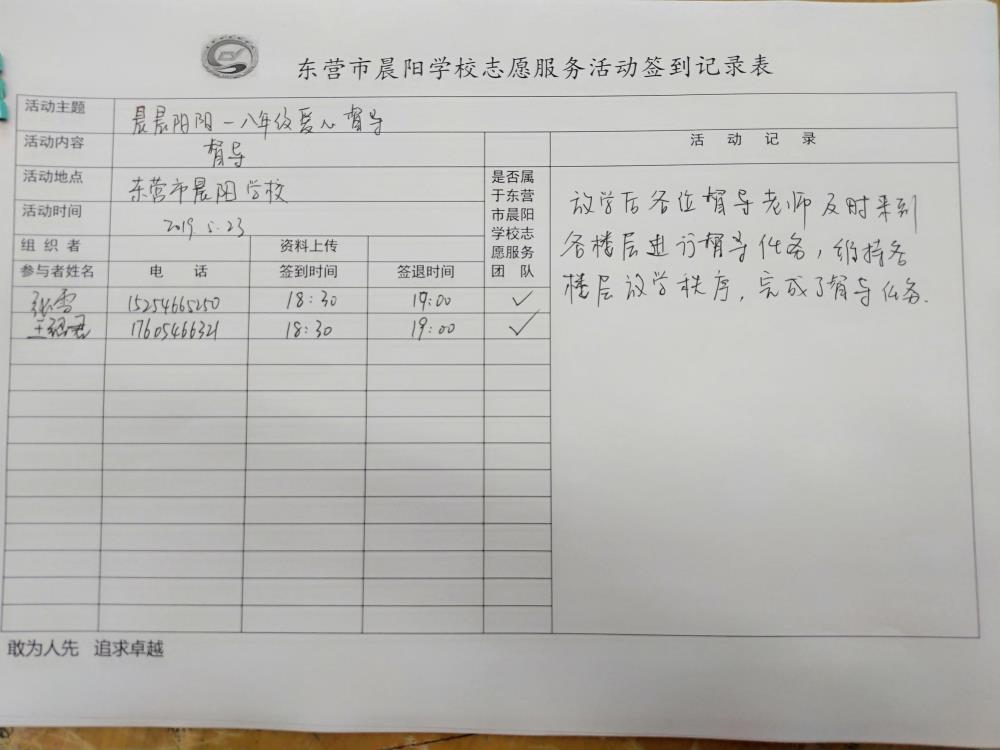 东营市晨阳学校志愿服务活动签到记录表
活动主题 晨晨阳阳一八年级爱心督导
活动内容 督导
活动地点 东营市晨阳学校
活动时间 2019.5.23
组织者 资料上传
参与者姓名 电话 签到时间 签退时间
是否属
于东营
市晨阳
学校志
愿服务
团队
张雪 15254665250 18:30 19:00 ✓
17605466321 18:30 19:00 ✓
活动记录
放学后各位督导老师及时来到
各楼层进行督导任务,维持各
楼层放学秩序,完成了督导任务.
敢为人先 追求卓越